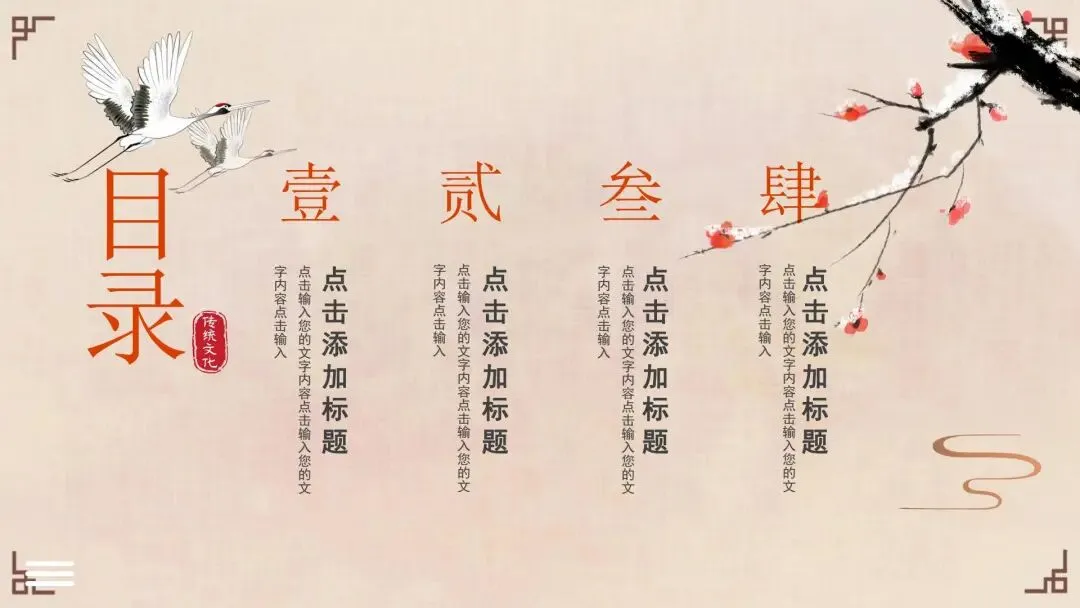 目录
传统文化
壹
点击添加标题
点击输入您的文字内容点击输入您的文
字内容点击输入
贰
点击添加标题
点击输入您的文字内容点击输入您的文
字内容点击输入
叁
点击添加标题
点击输入您的文字内容点击输入您的文
字内容点击输入
肆
点击添加标题
点击输入您的文字内容点击输入您的文
字内容点击输入